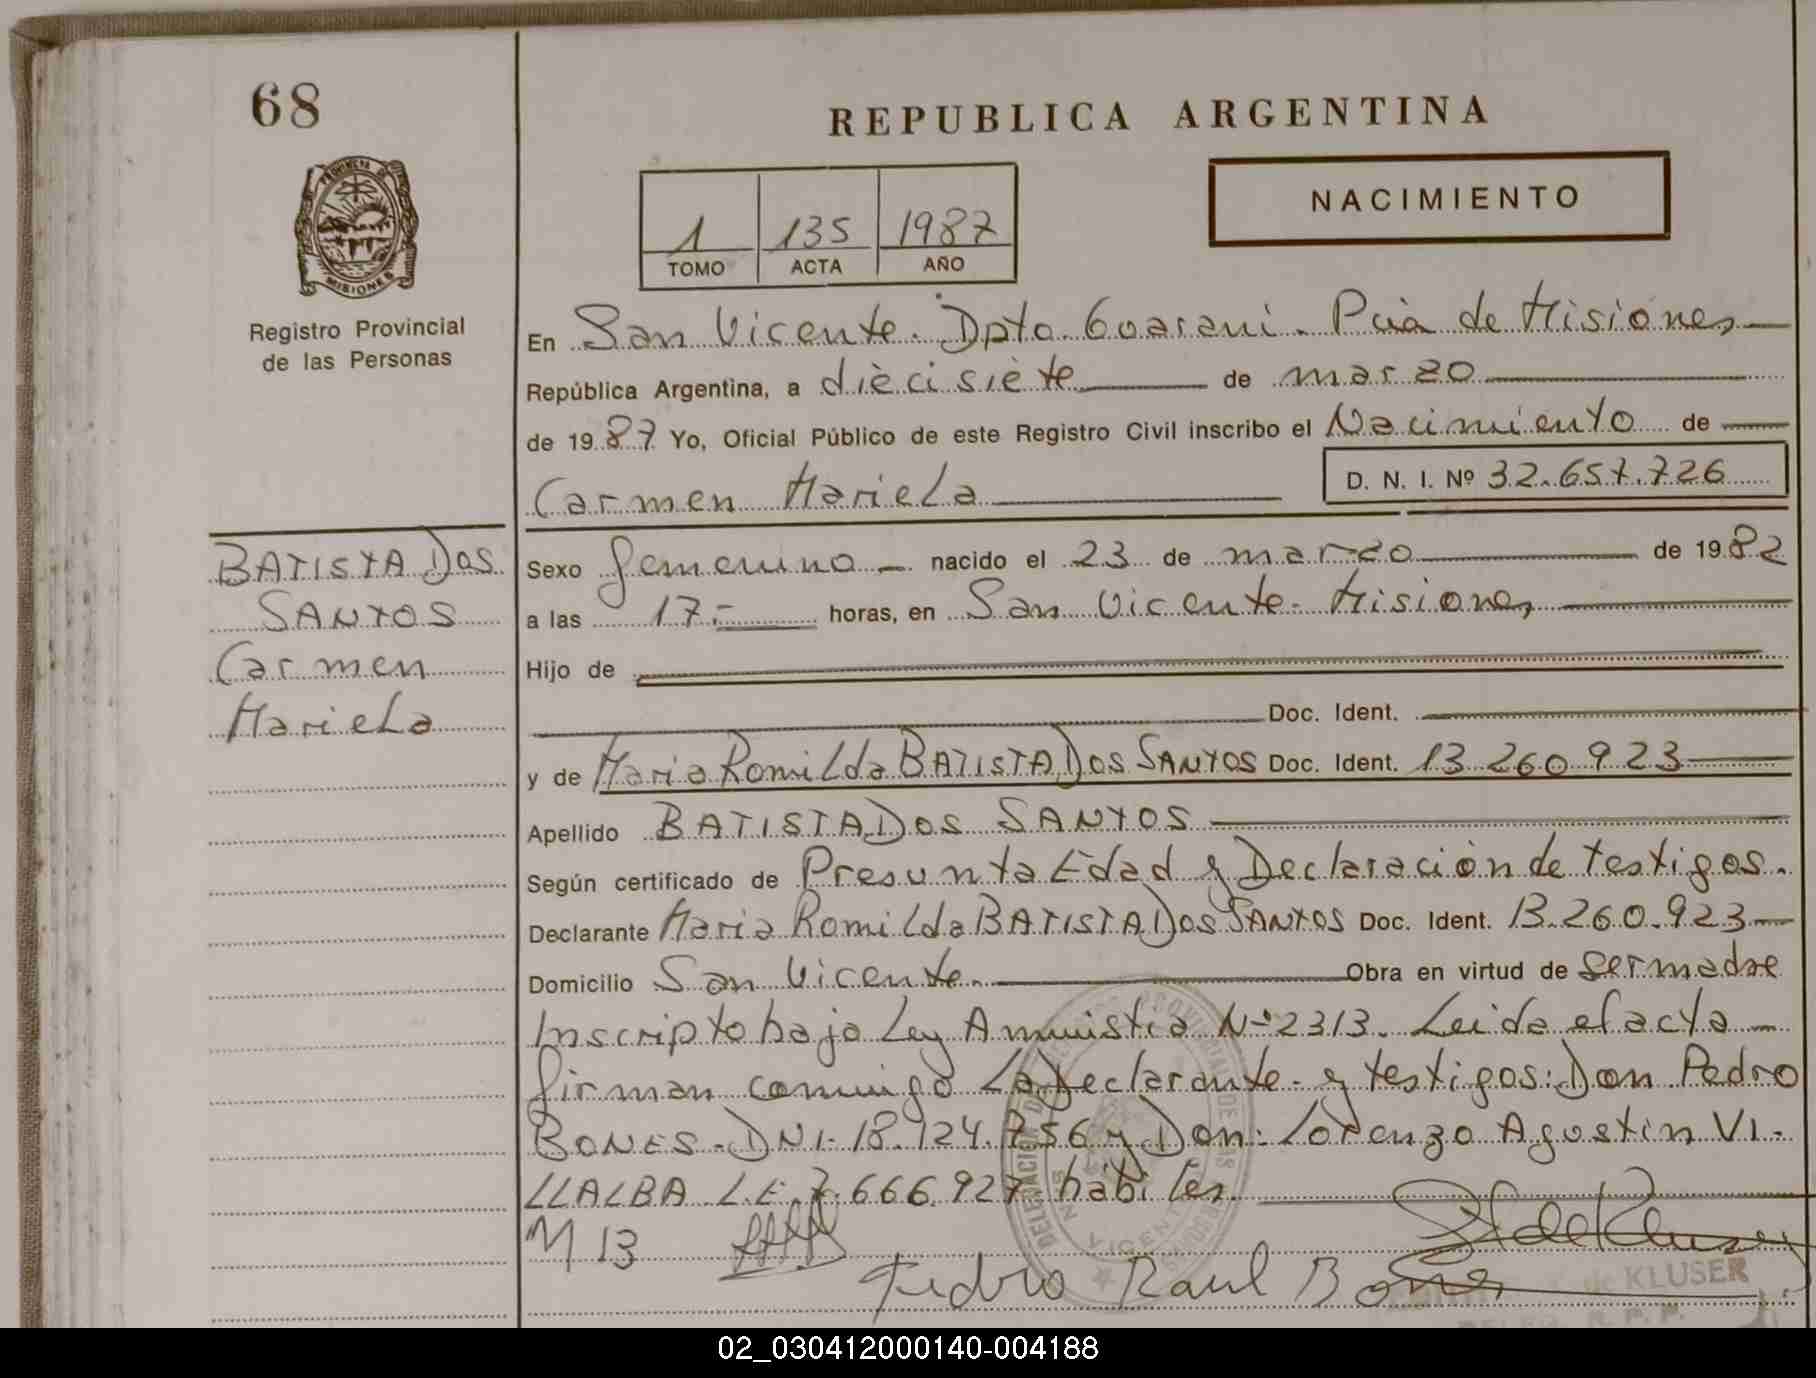 68
REPUBLICA ARGENTINA
PROVINCIA DE
MISIONES
Registro Provincial
de las Personas
1 135 1987
TOMO ACTA AÑO
NACIMIENTO
En San Vicente. Dpto. Guarani. Pcia de Misiones
República Argentina, a diecisiete de marzo
de 1987 Yo, Oficial Público de este Registro Civil inscribo el Nacimiento de
Carmen Mariela D. N. I. Nº 32.657.726
BATISTA DOS
SANTOS
Carmen
Mariela
Sexo femenino nacido el 23 de marzo de 1982
a las 17.- horas, en San Vicente. Misiones
Hijo de
Doc. Ident.
y de Maria Romilda BATISTA DOS SANTOS Doc. Ident. 13.260.923
Apellido BATISTA DOS SANTOS
Según certificado de Presunta Edad y Declaración de testigos.
Declarante Maria Romilda BATISTA DOS SANTOS Doc. Ident. 13.260.923
Domicilio San Vicente. Obra en virtud de ser madre
Inscripto bajo Ley Amnistia Nº 2313. Leida el acta
firman conmigo La Declarante y testigos: Don Pedro
BONES. DNI. 18.124.756 y Don: Lorenzo Agustin VI-
LLALBA L.E. 7.666.927 habiles.
M 13
Pedro Raul Bones
de KLUSER
02_030412000140-004188